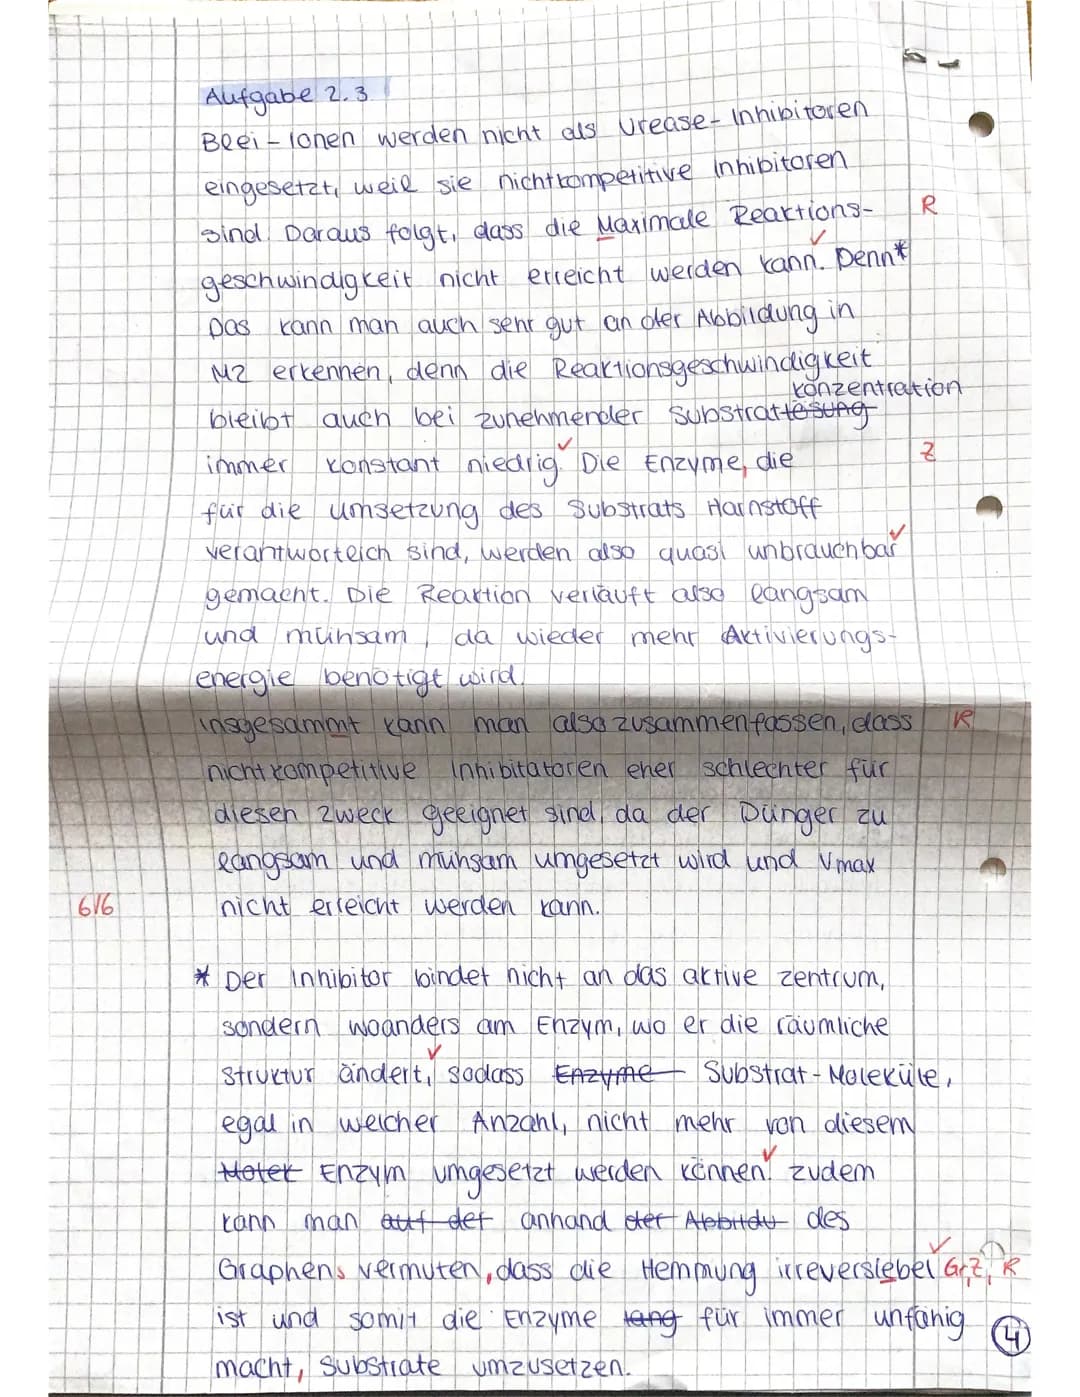 Aufgabe 2.3
Blei-Ionen werden nicht als Urease-Inhibitoren
eingesetzt, weil sie nichtkompetitive Inhibitoren
sind. Daraus folgt, dass die Maximale Reaktions- R
geschwindigkeit nicht erreicht werden kann. Denn*
Das kann man auch sehr gut an der Abbildung in
M2 erkennen, denn die Reaktionsgeschwindigkeit
konzentration
bleibt auch bei zunehmender Substratlösung
immer konstant niedrig. Die Enzyme, die Z
für die Umsetzung des Substrats Harnstoff
verantwortlich sind, werden also quasi unbrauchbar
gemacht. Die Reaktion verläuft also langsam
und mühsam, da wieder mehr Aktivierungs-
energie benötigt wird.
Insgesammt kann man also zusammenfassen, dass R
nichtkompetitive Inhibitatoren eher schlechter für
diesen Zweck geeignet sind, da der Dünger zu
langsam und mühsam umgesetzt wird und Vmax
6/6 nicht erreicht werden kann.
* Der Inhibitor bindet nicht an das aktive Zentrum,
sondern woanders am Enzym, wo er die räumliche
Struktur ändert, sodass Enzyme Substrat-Moleküle,
egal in welcher Anzahl, nicht mehr von diesem
Molek Enzym umgesetzt werden können. Zudem
kann man auf der anhand der Abbildu des
Graphens vermuten, dass die Hemmung irreversiebel Gr, Z, R
ist und somit die Enzyme lang für immer unfähig
macht, Substrate umzusetzen.
4